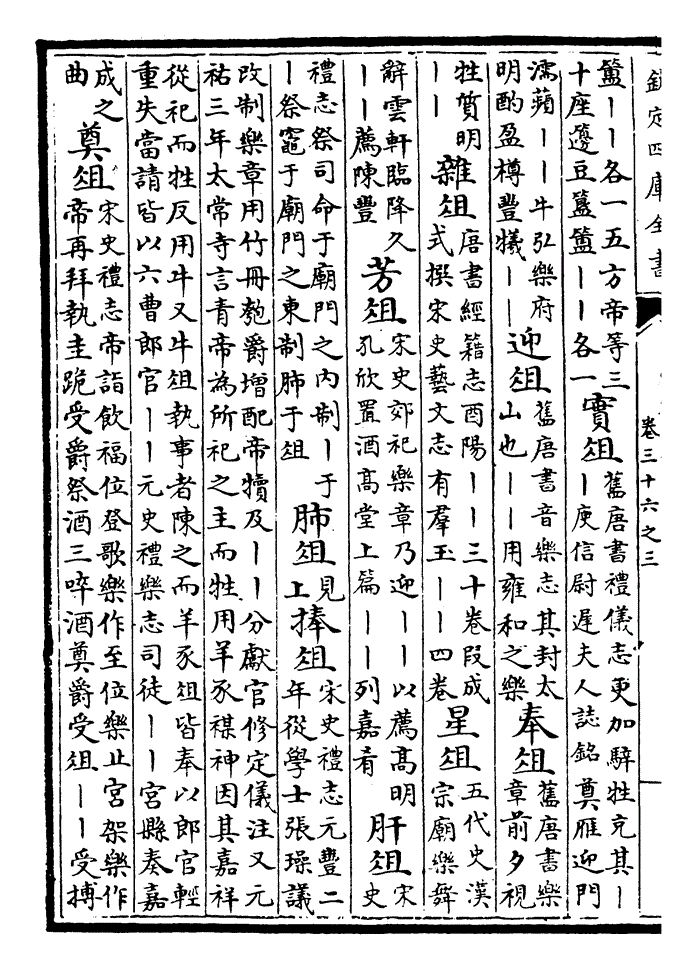 欽定四庫全書
卷三十六之三
簠丨丨各一五方帝等三十座籩豆簋簠丨丨各一實俎舊唐書禮儀志更加騂牲充其丨丨庾信尉遲夫人誌銘奠雁迎門
濡蘋丨丨牛弘樂府明酌盈樽豐犧丨丨迎俎舊唐書音樂志其封太山也丨丨用雍和之樂奉俎舊唐書樂章前夕視
牲質明丨丨雜俎唐書經籍志酉陽丨丨三十卷段成式撰宋史藝文志有羣玉丨丨四卷星俎五代史漢宗廟樂舞
辭雲軒臨降久丨丨薦陳豐芳俎宋史郊祀樂章乃迎丨丨以薦高明孔欣置酒高堂上篇丨丨列嘉肴肝俎宋史
禮志祭司命于廟門之内制丨于丨祭竈于廟門之東制肺于俎肺俎見上捧俎宋史禮志元豐二年從學士張璪議
改制樂章用竹冊匏爵增配帝犢及丨丨分獻官修定儀注又元祐三年太常寺言青帝為所祀之主而牲用羊豕禖神因其嘉祥
從祀而牲反用牛又牛俎執事者陳之而羊豕俎皆奉以郎官輕重失當請皆以六曹郎官丨丨元史禮樂志司徒丨丨宮縣奏嘉
成之曲奠俎宋史禮志帝詣飲福位登歌樂作至位樂止宮架樂作帝再拜執圭跪受爵祭酒三啐酒奠爵受俎丨丨受搏